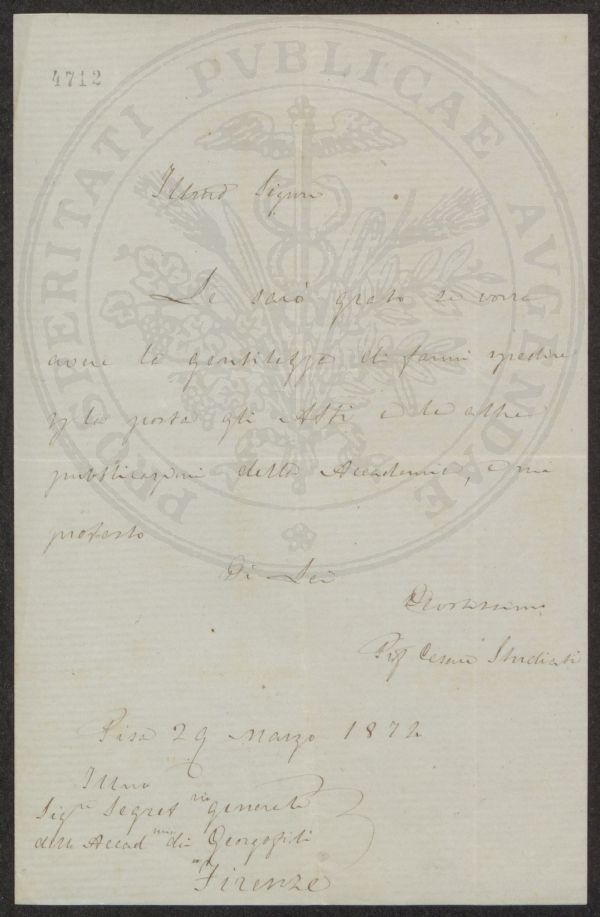 4712
PROSPERITATI PVBLICAE AVGENDAE
Illmo Signore
Le sarò grato se vorrà
avere la gentilezza di farmi spedire
p la posta gli Atti e le altre
pubblicazioni della Accademia, e mi
protesto
Di Lei
Devotissimo
Prof Cesare Studiati
Pisa 29 Marzo 1872
Illmo
Sigre Segretrio generale
della Accadmia dei Georgofili
Firenze